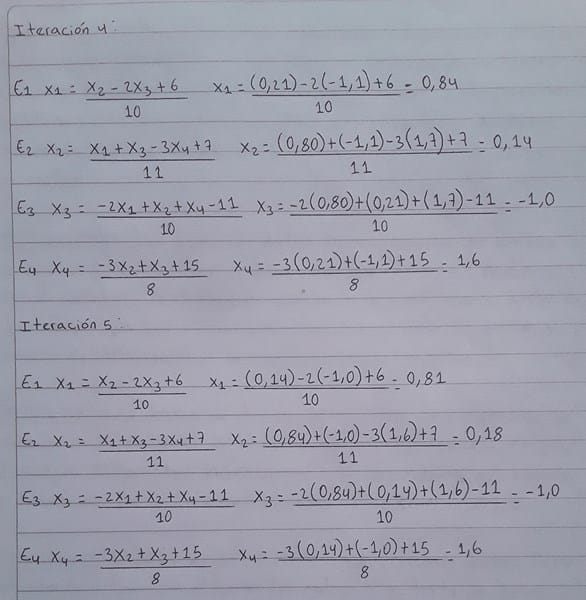 Iteración 4:
E1 x1 = x2 - 2x3 + 6 / 10 x1 = (0,21) - 2(-1,1) + 6 / 10 = 0,84
E2 x2 = x1 + x3 - 3x4 + 7 / 11 x2 = (0,80) + (-1,1) - 3(1,7) + 7 / 11 = 0,14
E3 x3 = -2x1 + x2 + x4 - 11 / 10 x3 = -2(0,80) + (0,21) + (1,7) - 11 / 10 = -1,0
E4 x4 = -3x2 + x3 + 15 / 8 x4 = -3(0,21) + (-1,1) + 15 / 8 = 1,6
Iteración 5:
E1 x1 = x2 - 2x3 + 6 / 10 x1 = (0,14) - 2(-1,0) + 6 / 10 = 0,81
E2 x2 = x1 + x3 - 3x4 + 7 / 11 x2 = (0,84) + (-1,0) - 3(1,6) + 7 / 11 = 0,18
E3 x3 = -2x1 + x2 + x4 - 11 / 10 x3 = -2(0,84) + (0,14) + (1,6) - 11 / 10 = -1,0
E4 x4 = -3x2 + x3 + 15 / 8 x4 = -3(0,14) + (-1,0) + 15 / 8 = 1,6